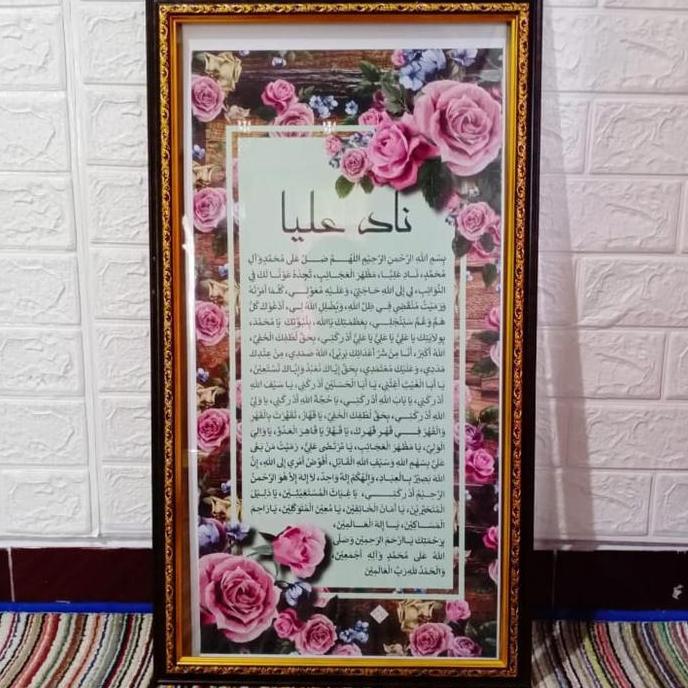 ناد عليا
بِسْمِ اللهِ الرَّحْمنِ الرَّحِيْمِ اللّهُمَّ صَلِّ عَلى مُحَمَّدٍ وَآلِ
مُحَمَّدٍ، نَادِ عَلِيًّا، مَظْهَرَ الْعَجَائِبِ، تَجِدْهُ عَوْنًا لَكَ فِي
النَّوَائِبِ، لِي إِلَى اللهِ حَاجَتِيْ، وَعَلَيْهِ مُعَوَّلِي، كُلَّمَا أَمَرْتَهُ
وَرَمَيْتُ مُنْقَضِي فِي ظِلِّ اللهِ، وَيُضْلِلِ اللهُ لِي، أَدْعُوْكَ كُلَّ
هَمٍّ وَغَمٍّ سَيَنْجَلِي، بِعَظَمَتِكَ يَااللهُ، بِنُبُوَّتِكَ يَا مُحَمَّدُ،
بِوِلَايَتِكَ يَا عَلِيُّ يَا عَلِيُّ يَا عَلِيُّ أَدْرِكْنِي، بِحَقِّ لُطْفِكَ الْخَفِيِّ،
اللهُ أَكْبَرُ، أَنَا مِنْ شَرِّ أَعْدَائِكَ بَرِيْئٌ، اللهُ صَمَدِي، مِنْ عِنْدِكَ
مَدَدِي، وَعَلَيْكَ مُعْتَمَدِي، بِحَقِّ إِيَّاكَ نَعْبُدُ وَإِيَّاكَ نَسْتَعِيْنُ،
يَا أَبَا الْغَيْثِ أَغِثْنِي، يَا أَبَا الْحَسَنَيْنِ أَدْرِكْنِي، يَا سَيْفَ اللهِ
أَدْرِكْنِي، يَا بَابَ اللهِ أَدْرِكْنِي، يَا حُجَّةَ اللهِ أَدْرِكْنِي، يَا وَلِيَّ
اللهِ أَدْرِكْنِي، بِحَقِّ لُطْفِكَ الْخَفِيِّ، يَا قَهَّارُ، تَقَهَّرْتَ بِالْقَهْرِ
وَالْقَهْرُ فِي قَهْرِ قَهْرِكَ، يَا قَهَّارُ يَا قَاهِرَ الْعَدُوِّ، يَا وَالِيَ
الْوَلِيِّ، يَا مَظْهَرَ الْعَجَائِبِ، يَا مُرْتَضَى عَلِيُّ، رَمَيْتُ مَنْ بَغَى
عَلَيَّ بِسَهْمِ اللهِ وَسَيْفِ اللهِ الْقَاتِلِ، أُفَوِّضُ أَمْرِي إِلَى اللهِ، إِنَّ
اللهَ بَصِيْرٌ بِالْعِبَادِ، وَإِلهُكُمْ إِلهٌ وَاحِدٌ، لَا إِلهَ إِلَّا هُوَ الرَّحْمنُ
الرَّحِيْمُ أَدْرِكْنِي، يَا غِيَاثَ الْمُسْتَغِيْثِيْنَ، يَا دَلِيْلَ
الْمُتَحَيِّرِيْنَ، يَا أَمَانَ الْخَائِفِيْنَ، يَا مُعِيْنَ الْمُتَوَكِّلِيْنَ، يَا رَاحِمَ
الْمَسَاكِيْنِ، يَا إِلهَ الْعَالَمِيْنَ،
بِرَحْمَتِكَ يَا أَرْحَمَ الرَّحِمِيْنَ وَصَلَّى
اللهُ عَلى مُحَمَّدٍ وَآلِهِ أَجْمَعِيْنَ،
وَالْحَمْدُ لِلهِ رَبِّ الْعَالَمِيْنَ